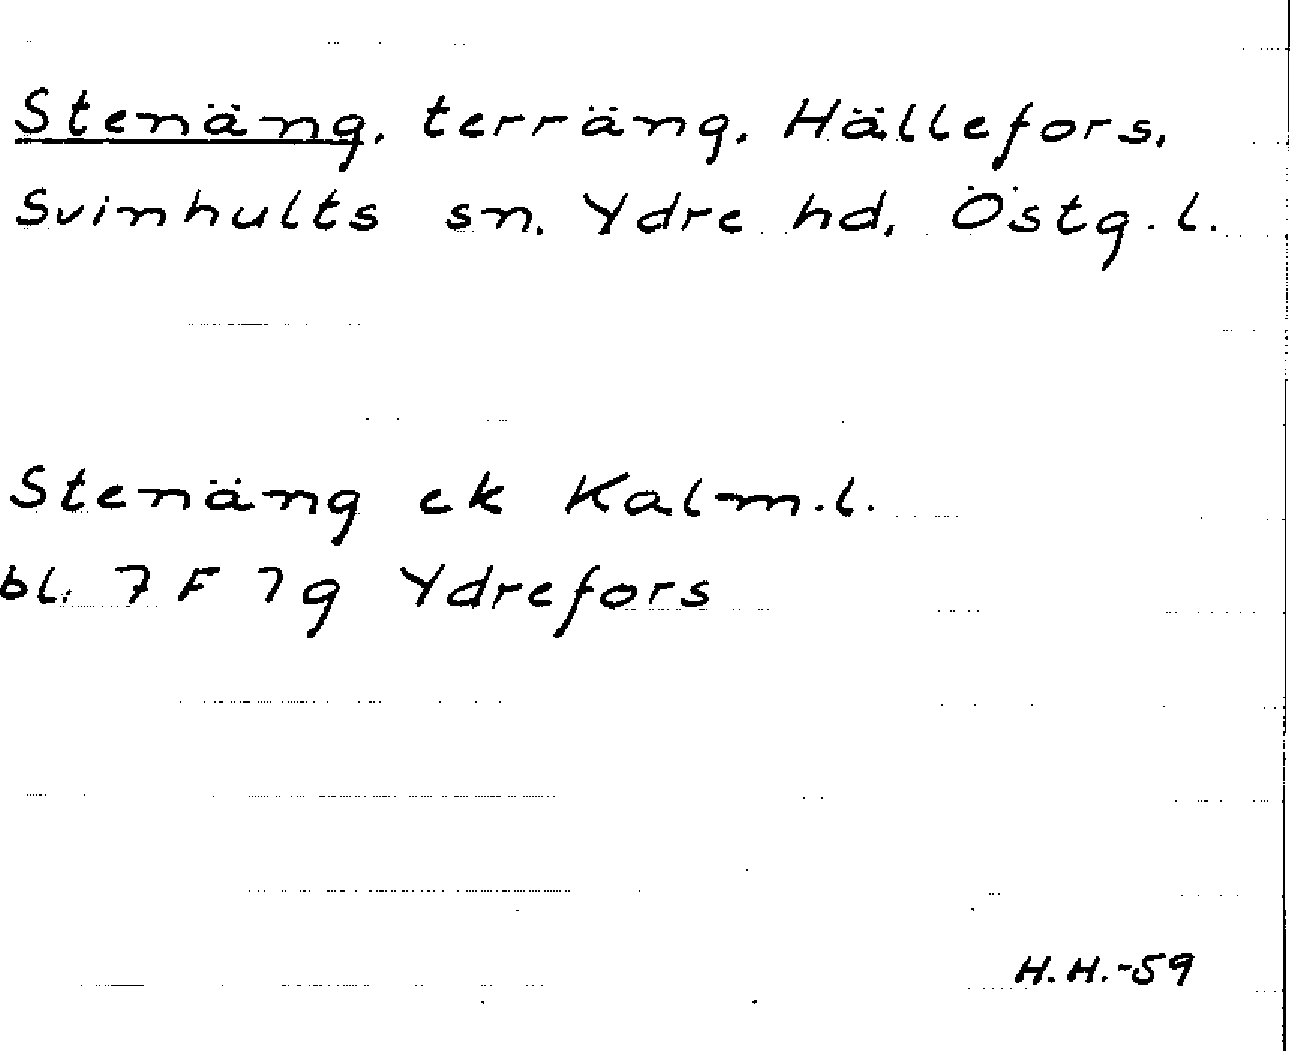 Stenäng, terräng, Hällefors,
Svinhults sn. Ydre hd, Östg. l.
Stenäng ek Kalm. l.
bl. 7 F 7g Ydrefors
H.H.-59